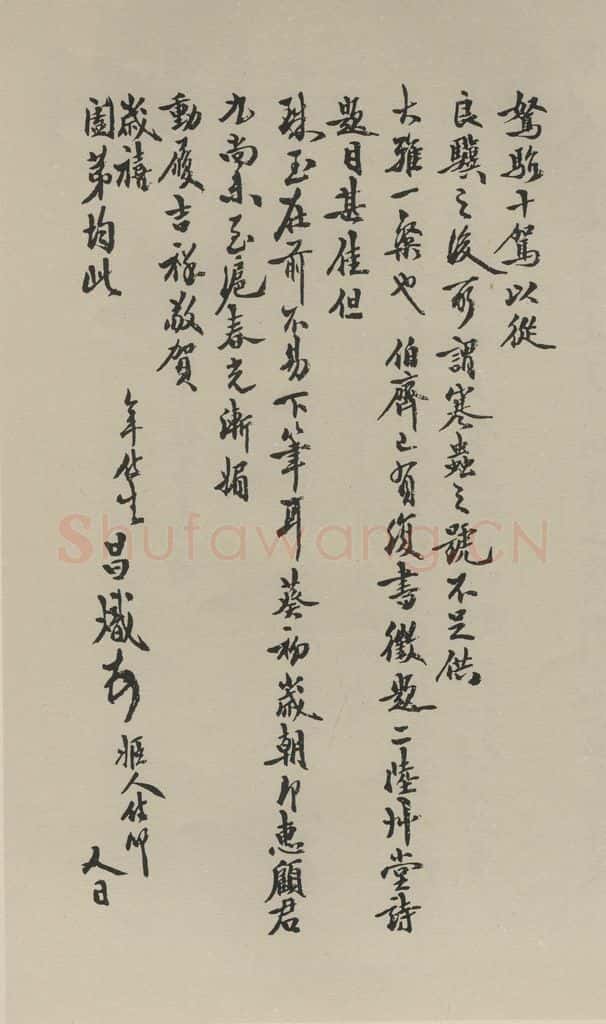 駑駘十駕以從
良驥之後所謂寒蟲之號不足供
大雅一粲也伯齊已有復書徵題二陸艸堂詩
題目甚佳但
珠玉在前不易下筆耳葵初歲朝即惠顧君
九尚未至滬春光漸媚
動履吉祥敬賀
歲禧
闔第均此
年侍生昌熾頓
姬人侍叩
人日
Shufawang.CN